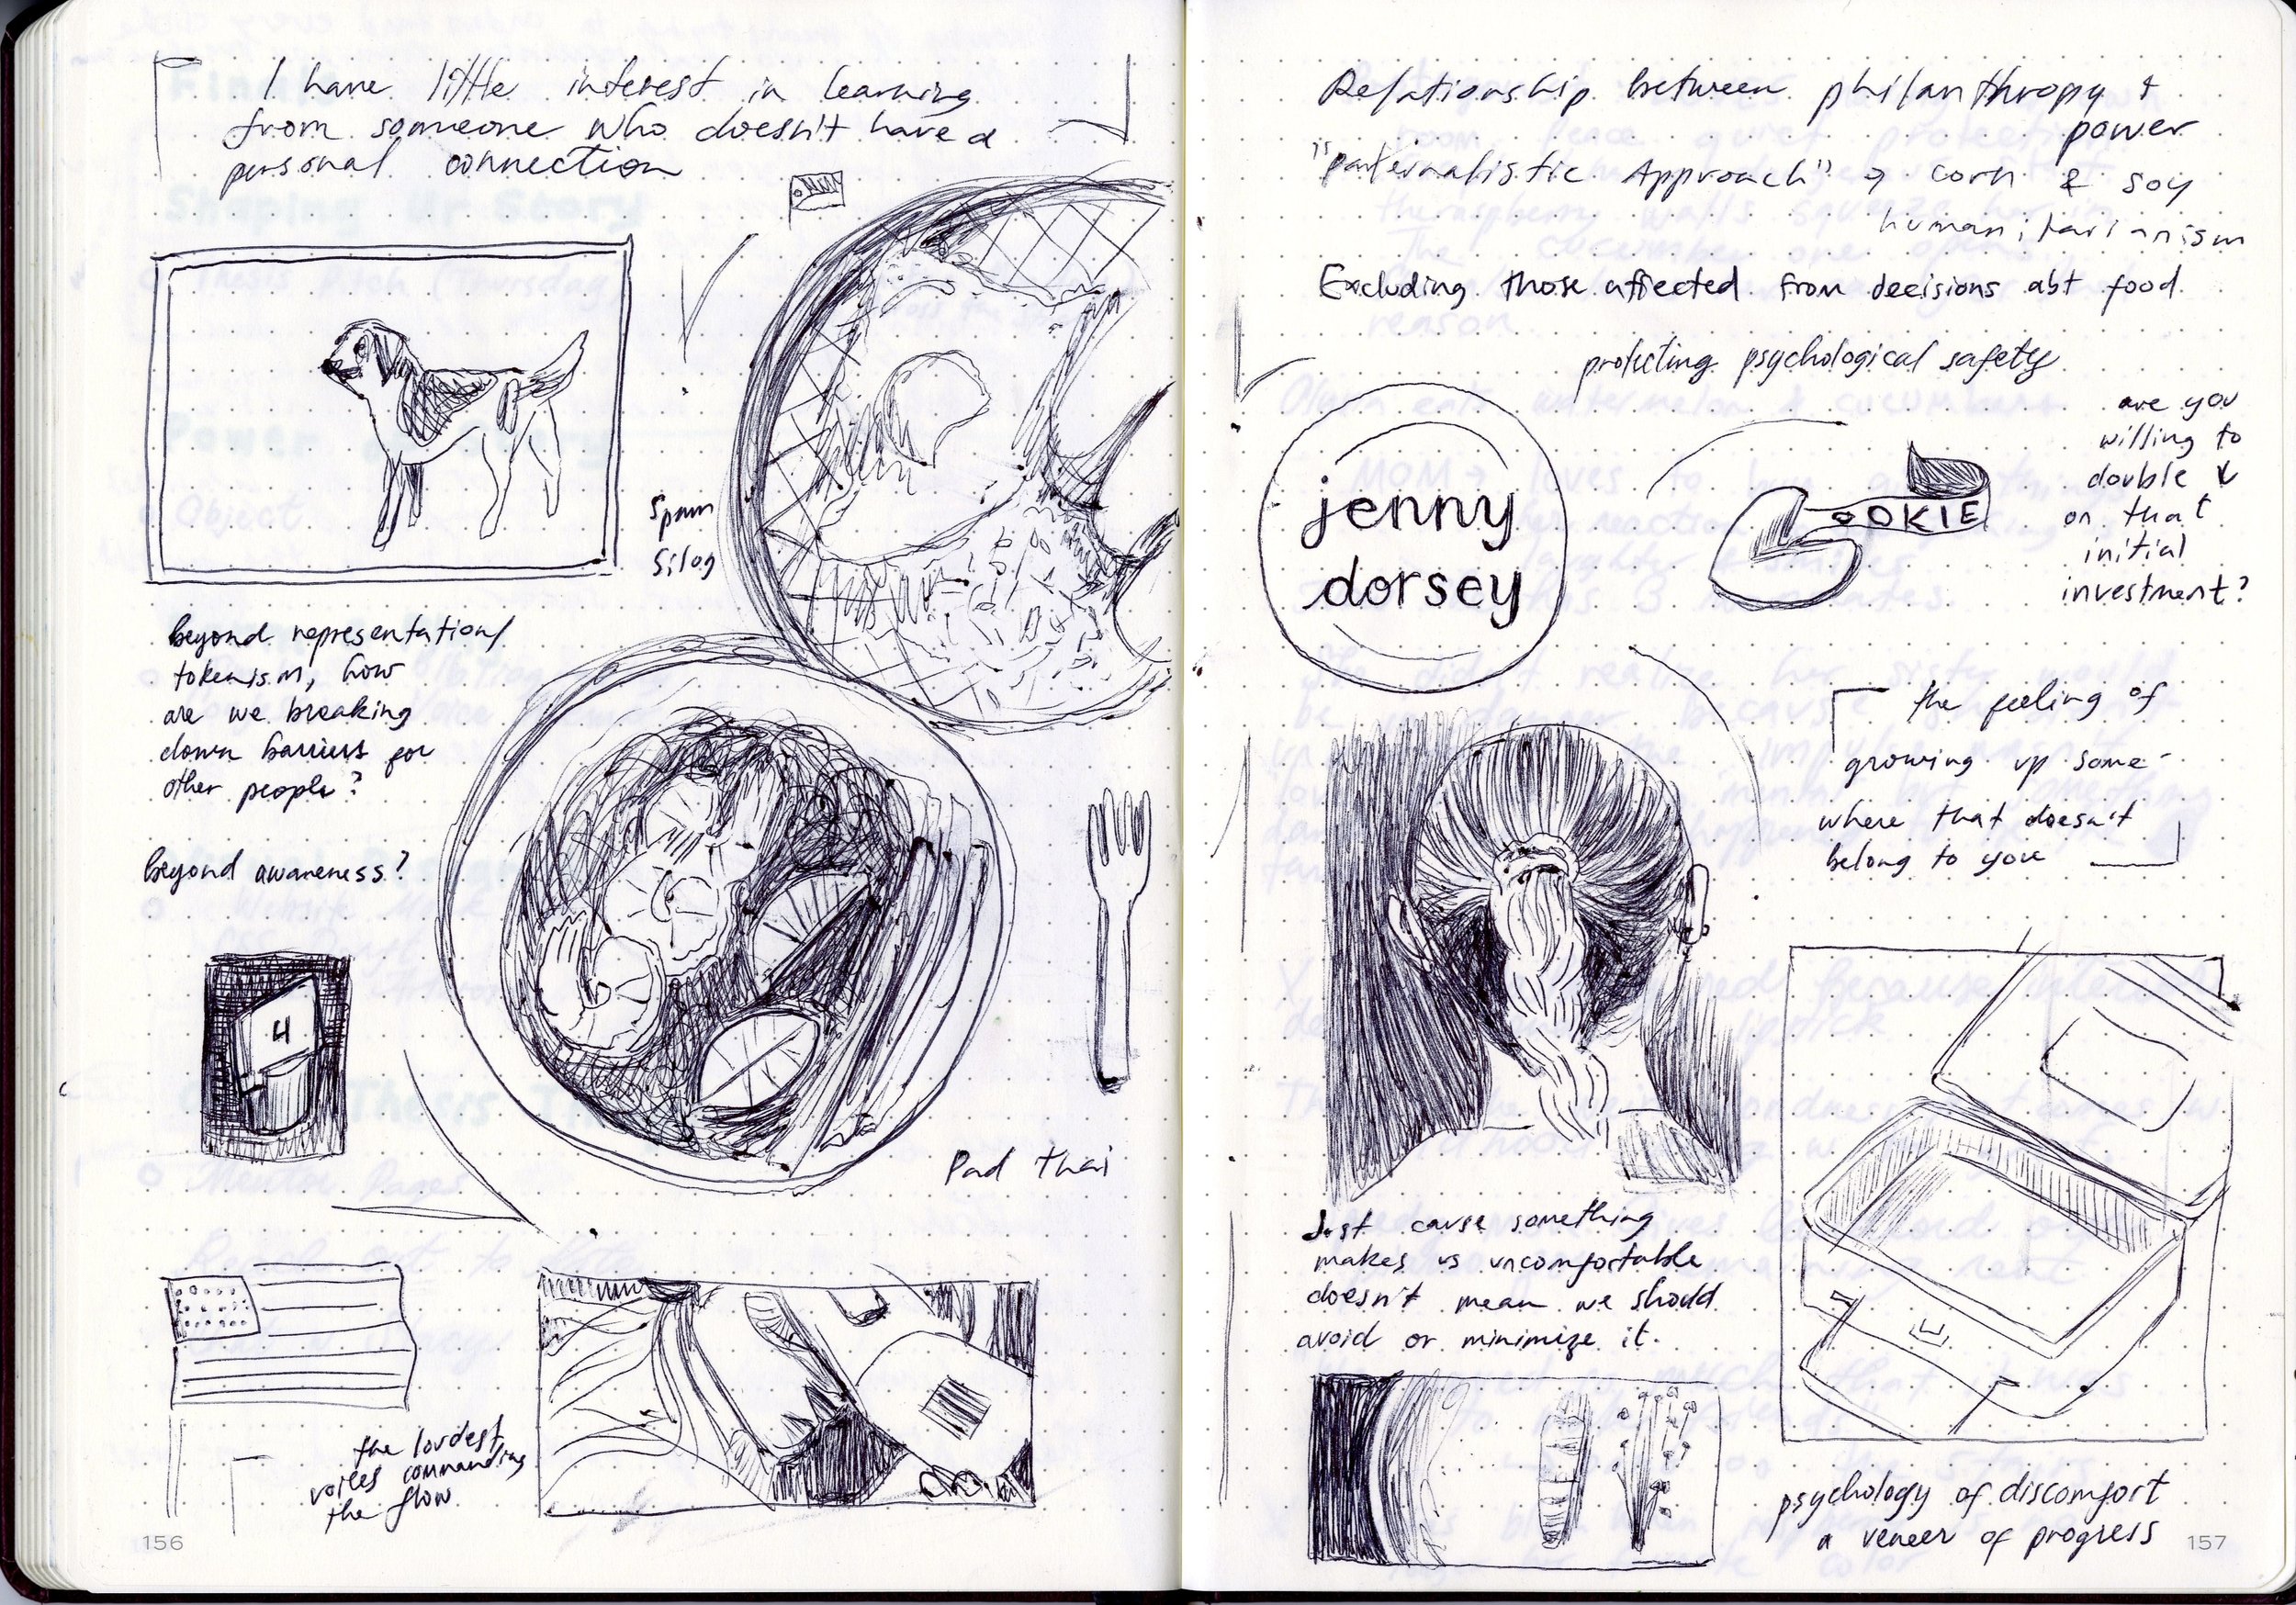 I have little interest in learning
from someone who doesn't have a
personal connection
Spam
Silog
beyond representation/
tokenism, how
are we breaking
down barriers for
other people?
beyond awareness?
4
Pad thai
the loudest
voices commanding
the flow
156
Relationship between philanthropy &
power
"paternalistic Approach" → corn & soy
humanitarianism
Excluding those affected from decisions abt food
protecting psychological safety
are you
willing to
double ↓
on that
initial
investment?
jenny
dorsey
COOKIE
the feeling of
growing up some-
where that doesn't
belong to you
Just cause something
makes us uncomfortable
doesn't mean we should
avoid or minimize it.
psychology of discomfort
a veneer of progress
157